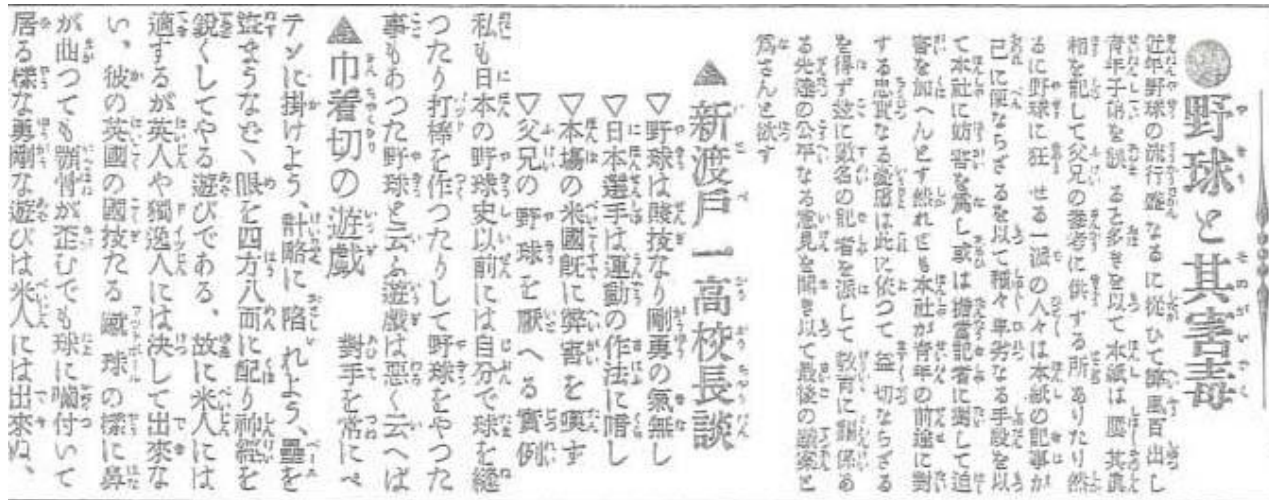 野球と其害毒
近年野球の流行盛なるに従ひて弊風百出し
青年子弟を誤ること多きを以て本紙は屢其真
相を記して父兄の参考に供する所ありたり然
るに野球に狂せる一派の人々は本紙の記事が
己に便ならざるを以て種々卑劣なる手段を以
て本社に妨害を為し或は担当記者に対して迫
害を加へんとす然れども本社が青年の前途に対
する忠実なる憂慮は此に依つて益切ならざる
を得ず茲に数名の記者を派して教育に関係あ
る先達の公平なる意見を聞き以て最後の鉄案と
為さんと欲す
▲新渡戸一高校長談
▽野球は賤技なり剛勇の気無し
▽日本選手は運動の作法に暗し
▽本場の米國既に弊害を嘆ず
▽父兄の野球を厭へる実例
私も日本の野球史以前には自分で球を縫
つたり打棒を作つたりして野球をやつた
事もあつた野球と云ふ遊戯は悪く云へば
▲巾着切の遊戯 對手を常にペ
テンに掛けよう、計略に陥れよう、塁を
盗まうなどゝ眼を四方八面に配り神経を
鋭くしてやる遊びである、故に米人には
適するが英人や獨逸人には決して出來な
い、彼の英國の國技たる蹴球の様に鼻
が曲つても顎骨が歪むでも球に噛付いて
居る様な勇剛な遊びは米人には出來ぬ、